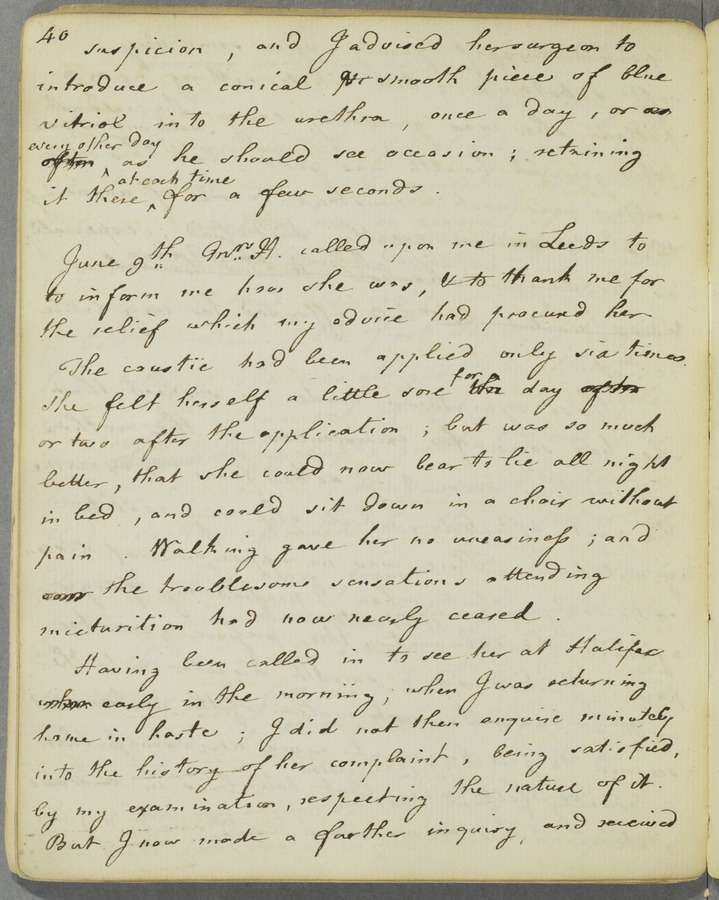 40
suspicion , and I advised her surgeon to
introduce a conical smooth piece of blue
vitriol into the urethra , once a day , or
every other day
often as he should see occasion ; retaining
at each time
it there, for a few seconds .
June 9th Mrs. H. called upon me in Leeds to
to inform me how she was, & to thank me for
the relief which my advice had procured her
The caustic had been applied only six times.
for
She felt herself a little sore the day after
or two after the application ; but was so much
better, that she could now bear to lie all night
in bed , and could sit down in a chair without
pain . Walking gave her no uneasiness ; and
the troublesome sensations attending
micturition had now nearly ceased .
Having been called in to see her at Halifax
when early in the morning, when I was returning
home in haste ; I did not then enquire minutely
into the history of her complaint , being satisfied,
by my examination, respecting the nature of it.
But I now made a further inquiry, and received